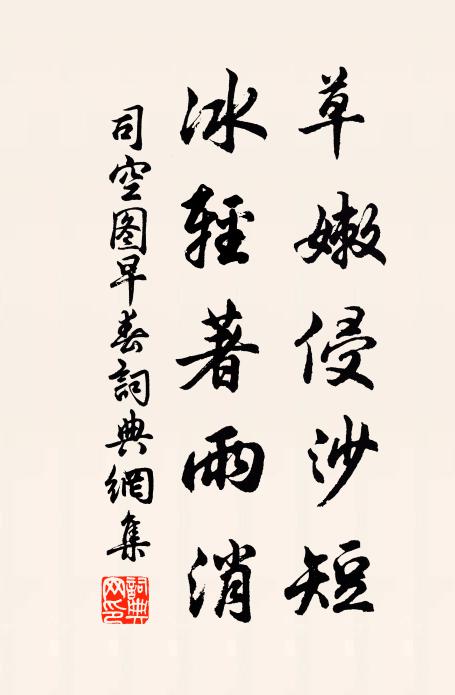 草嫩侵沙短
冰輕著雨消
司空图早春詞典網集
詞典网印